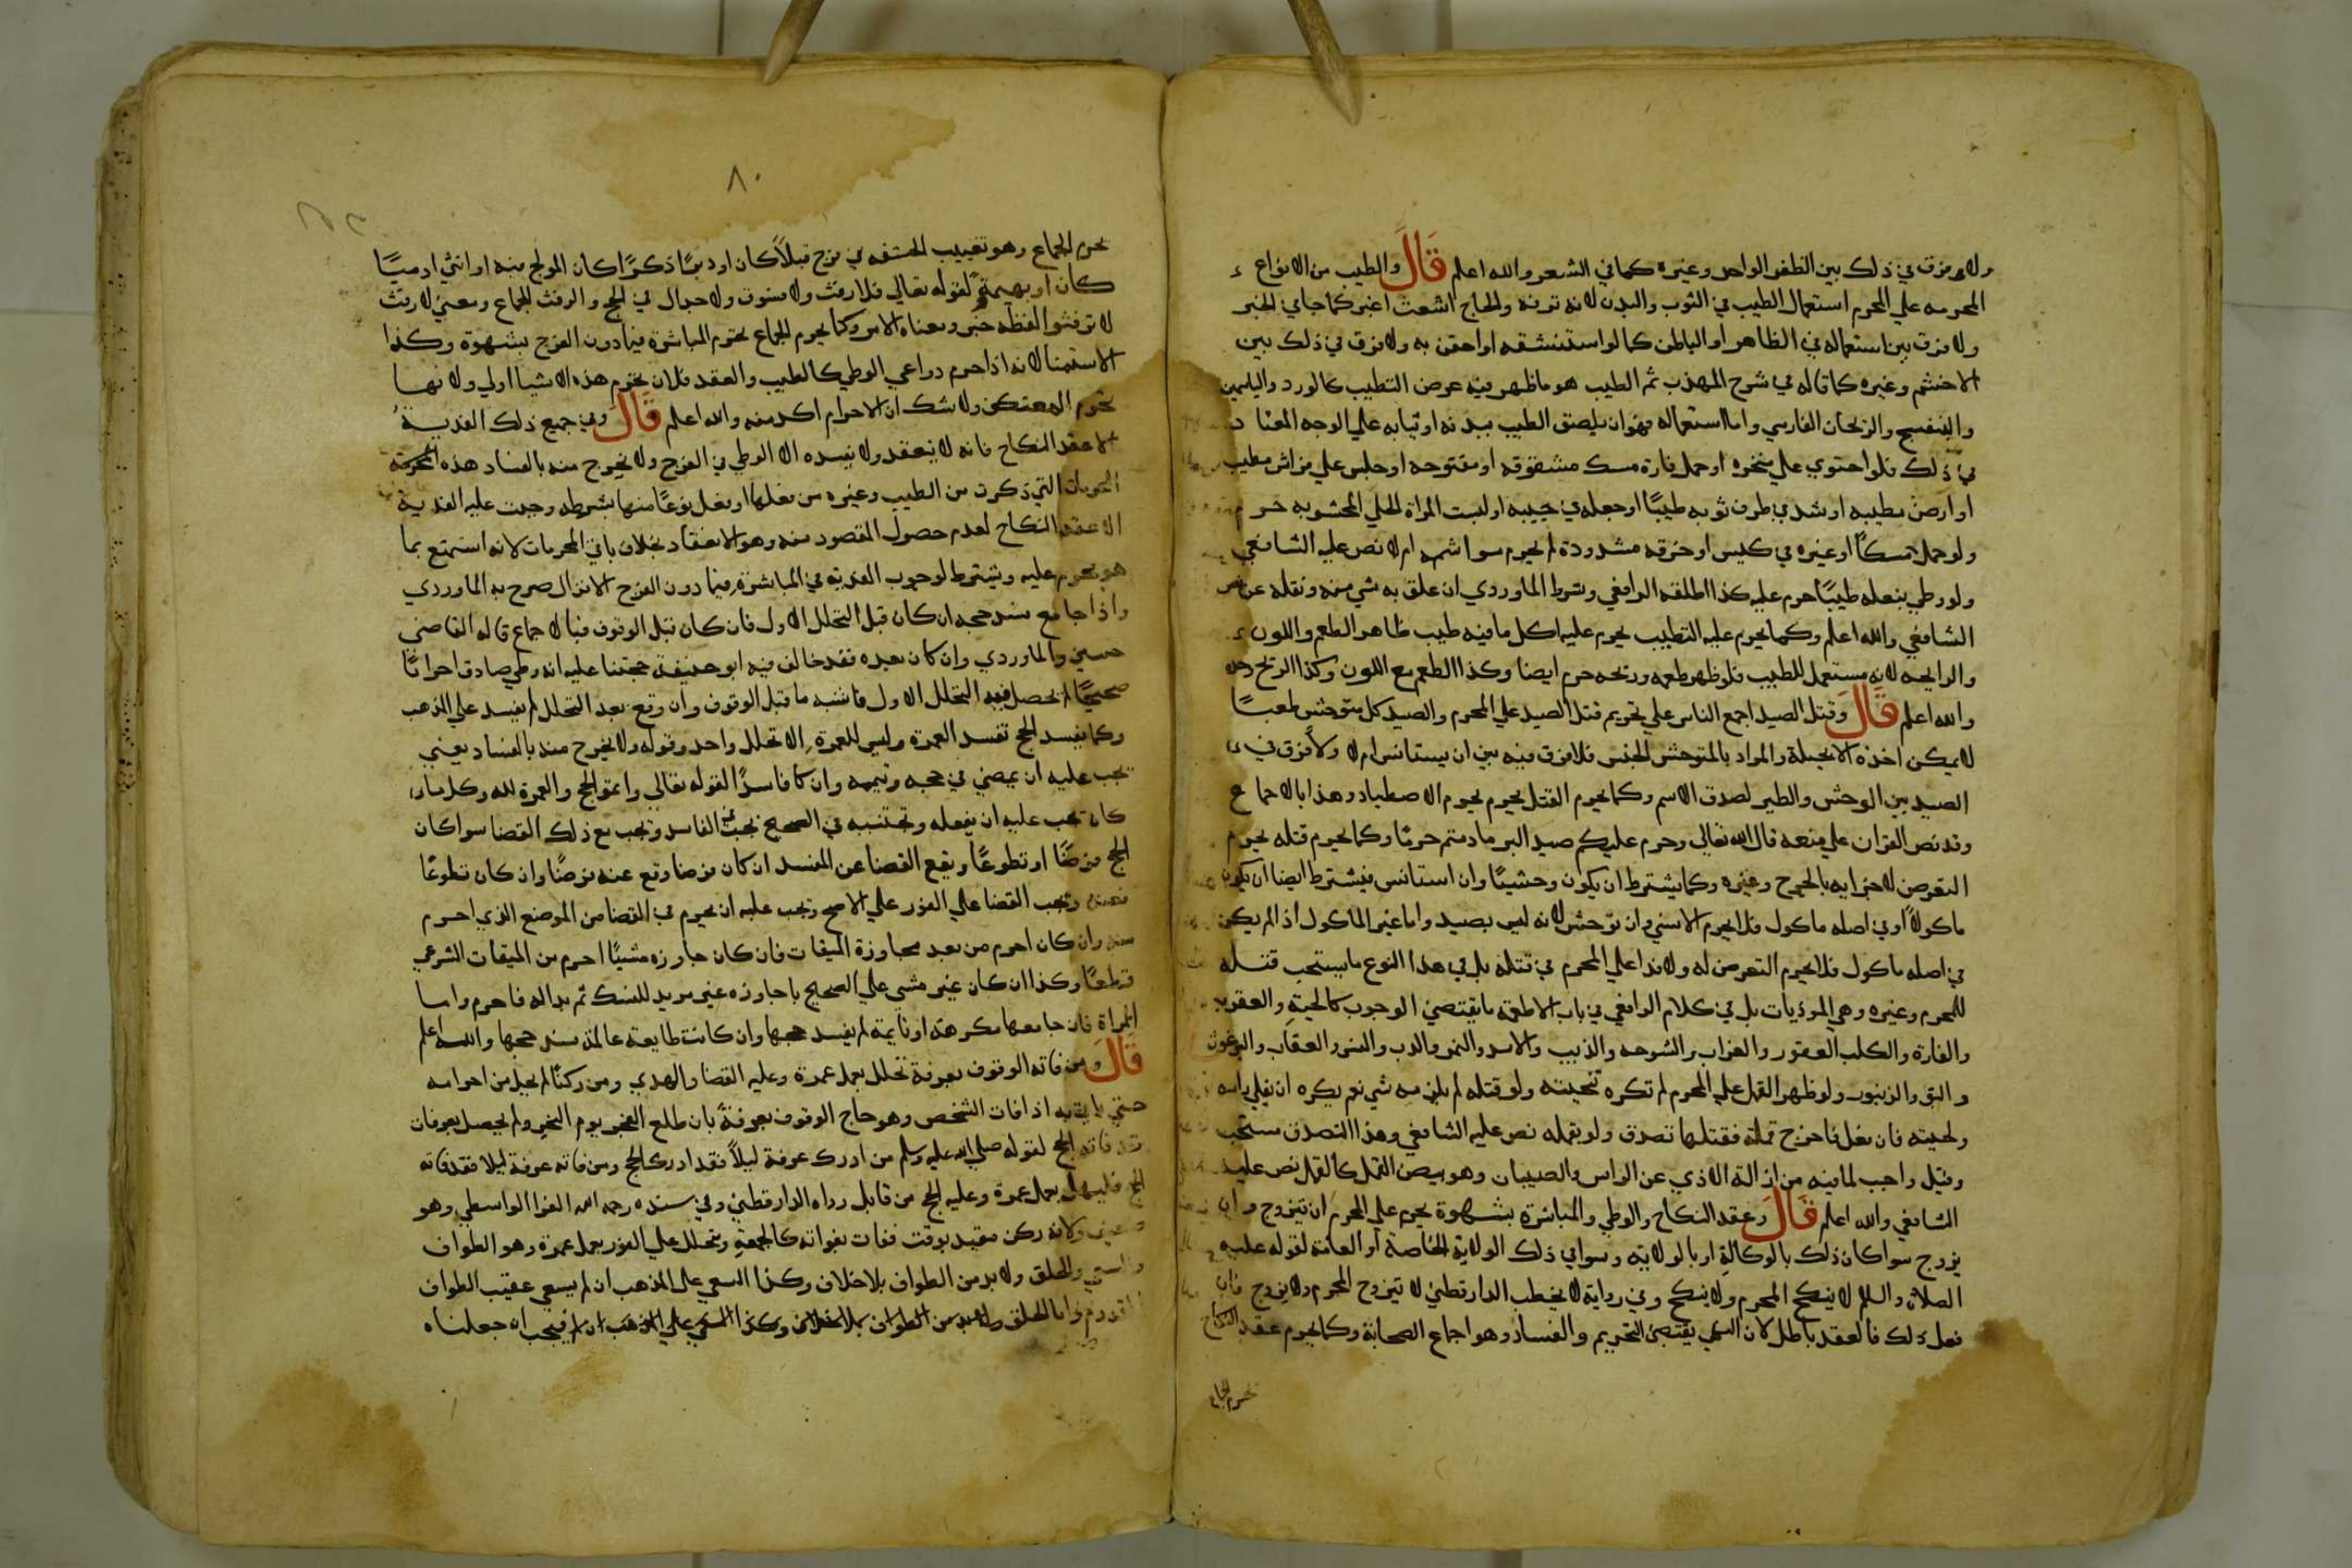 ولا فرق في ذلك بين الظفر الواحد وغيره كما في الشعر والله اعلم قال والطيب من الانواع
المحرمه علي المحرم استعمال الطيب في الثوب والبدن لانه ترفه والحاج اشعث اغبر كما جا في الخبر
ولا فرق بين استعماله في الظاهر او الباطن كما لو استنشقه او احتقن به ولا فرق في ذلك بين
الاخشم وغيره كما قاله في شرح المهذب ثم الطيب هو ما ظهر فيه عرض التطيب كالورد والياسمين
والبنفسج والريحان الفارسي واما استعماله فهو ان يلصق الطيب ببدنه او ثيابه علي الوجه المعتاد
في ذلك فلو احتوي علي مجمره او حمل فارة مسك مشقوقه او مفتوحه او جلس علي فراش مطيب
او ارض مطيبه او شد في طرف ثوبه طيبًا او جعله في جيبه او لبست المراة الحلي المحشو به حرم
ولو حمل مسكًا او غيره في كيس او خرقه مشدودة لم يحرم سوا شمه ام لا نص عليه الشافعي
ولو وطي بنعله طيبًا حرم عليه كذا اطلقه الرافعي وشرط الماوردي ان علق به شي منه ونقله عن نص
الشافعي والله اعلم وكما يحرم عليه التطيب يحرم عليه اكل ما فيه طيب ظاهر الطعم واللون
والرايحه لانه مستعمل للطيب فلو ظهر طعمه وريحه حرم ايضا وكذا الطعم مع اللون وكذا الريح وحده
والله اعلم قال وقتل الصيد اجمع الناس علي تحريم قتل الصيد علي المحرم والصيد كل متوحش طبعًا
لا يمكن اخذه الا بحيلة والمراد بالمتوحش الجنس فلا فرق فيه بين ان يستانس ام لا ولا فرق في
الصيد بين الوحش والطير لصدق الاسم وكما يحرم القتل يحرم الاصطياد وهذا بالاجماع
وقد نص القران علي منعه قال الله تعالي وحرم عليكم صيد البر ما دمتم حرمًا وكما يحرم قتله يحرم
التعرض لاجزايه بالجرح وغيره وكما يشترط ان يكون وحشيًا وان استانس فيشترط ايضا ان يكون
ماكولاً او في اصله ماكول فلا يحرم الانسي وان توحش لانه ليس بصيد واما غير الماكول اذا لم يكن
في اصله ماكول فلا يحرم التعرض له ولا فدا علي المحرم في قتله بل في هذا النوع ما يستحب قتله
للمحرم وغيره وهي الموذيات بل في كلام الرافعي في باب الاطعمة ما يقتضي الوجوب كالحية والعقرب
والفارة والكلب العقور والغراب والشوحه والذيب والاسد والنمر والدب والنسر والعقاب والبرغوث
والبق والزنبور ولو ظهر القمل علي المحرم لم تكره تنحيته ولو قتله لم يلزمه شي نعم يكره ان يفلي راسه
ولحيته فان فعل فاخرج قملة فقتلها تصدق ولو بقمله نص عليه الشافعي وهذا التصدق مستحب
وقيل واجب لما فيه من ازالة الاذي عن الراس والصيبان وهو بيض القمل كالقمل نص عليه
الشافعي والله اعلم قال وعقد النكاح والوطي والمباشرة بشهوة يحرم علي المحرم ان يتزوج وان
يزوج سوا كان ذلك بالوكالة او بالولاية وسوا في ذلك الولاية الخاصة او العامة لقوله عليه
الصلاة والسلم لا ينكح المحرم ولا ينكح وفي رواية لا يخطب الدارقطني لا يتزوج المحرم ولا يزوج فان
فعل ذلك فالعقد باطل لان النهي يقتضي التحريم والفساد وهو اجماع الصحابة وكما يحرم عقد النكاح
يحرم الجماع
٨٠
يحرم الجماع وهو تغييب الحشفه في فرج قبلاً كان او دبرًا ذكرًا كان المولج فيه او انثي ادميًا
كان او بهيمة لقوله تعالي فلا رفث ولا فسوق ولا جدال في الحج والرفث الجماع ومعني لا رفث
لا ترفثوا لفظه خبر ومعناه الامر وكما يحرم الجماع تحرم المباشرة فيما دون الفرج بشهوة وكذا
الاستمنا لانه اذا حرم دواعي الوطي كالطيب والعقد فلان تحرم هذه الاشيا اولي ولانها
تحرم المعتكف ولا شك ان الاحرام اكد منه والله اعلم قال وفي جميع ذلك الفدية
الا عقد النكاح فانه لا ينعقد ولا يفسده الا الوطي في الفرج ولا يخرج منه بالفساد هذه
المحرمات التي ذكرت من الطيب وغيره من فعلها او فعل نوعًا منها بشرطه وجبت عليه الفدية
الا عقد النكاح لعدم حصول المقصود منه وهو الانعقاد بخلاف باقي المحرمات لانه استمتع بما
هو محرم عليه ويشترط لوجوب الفدية في المباشرة فيما دون الفرج الانزال صرح به الماوردي
واذا جامع فسد حجه ان كان قبل التحلل الاول فان كان قبل الوقوف فبالاجماع قاله القاضي
حسين والماوردي وان كان بعده فقد خالف فيه ابو حنيفة حجتنا عليه انه وطي صادق احرامًا
صحيحًا لم يحصل فيه التحلل الاول فاشبه ما قبل الوقوف وان وقع بعد التحلل لم يفسد علي المذهب
وكما يفسد الحج تفسد العمرة وليس للعمرة الا تحلل واحد وقوله ولا يخرج منه بالفساد يعني
يجب عليه ان يمضي في حجه ويتمه وان كان فاسدًا لقوله تعالي واتموا الحج والعمرة لله وكل ما
كان يجب عليه ان يفعله ويجتنبه في الصحيح يجب في الفاسد ويجب مع ذلك القضا سوا كان
الحج فرضًا او تطوعًا ويقع القضا عن المفسد ان كان فرضا وقع عنه فرضًا وان كان تطوعًا
فعنه ويجب القضا علي الفور علي الاصح ويجب عليه ان يحرم في القضا من الموضع الذي احرم
منه وان كان احرم من بعد مجاوزة الميقات فان كان جاوزه مسيًا احرم من الميقات الشرعي
قطعًا وكذا ان كان غير مسي علي الصحيح بان جاوزه غير مريد للنسك ثم بدا له فاحرم واما
المراة فان جامعها مكرهة او نايمة لم يفسد حجها وان كانت طايعة عالمة فسد حجها والله اعلم
قال ومن فاته الوقوف بعرفة تحلل بعمل عمرة وعليه القضا والهدي ومن ركنًا لم يحل من احرامه
حتي ياتي به اذا فات الشخص وهو حاج الوقوف بعرفة بان طلع الفجر يوم النحر ولم يحصل بعرفات
فقد فاته الحج لقوله صلي الله عليه وسلم من ادرك عرفة ليلاً فقد ادرك الحج ومن فاته عرفة ليلا فقد فاته
الحج فليهل بعمل عمرة وعليه الحج من قابل رواه الدارقطني وفي سنده رحمه الله الفرا الواسطي وهو
ضعيف ولانه ركن مقيد بوقت ففات بفواته كالجمعة ويتحلل علي الفور بعمل عمرة وهو الطواف
والسعي والحلق ولا بد من الطواف بلا خلاف وكذا السعي علي المذهب ان لم يسعي عقيب الطواف
القدوم واما الحلق فيجب ان جعلناه